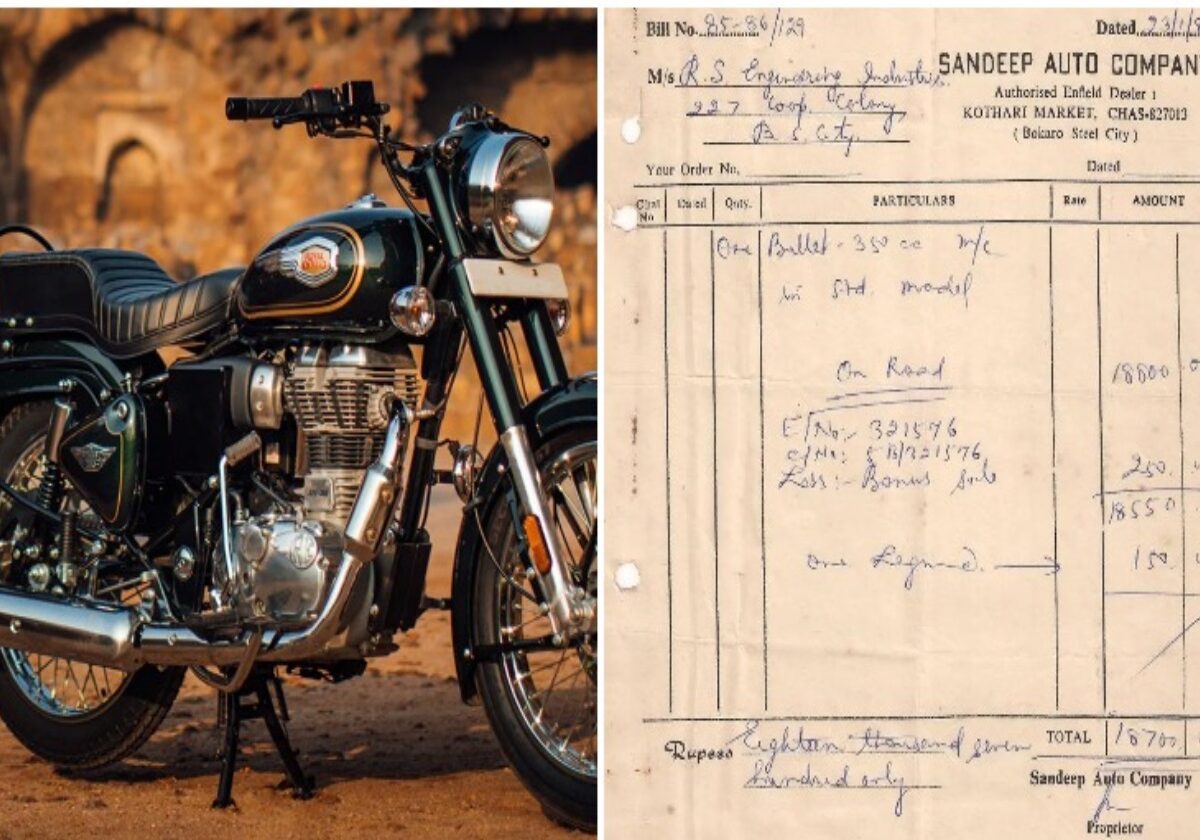 ROYAL ENFIELD
Bill No. 85-86/129
Dated 23/1/8
M/s R.S. Engineering Industries
SANDEEP AUTO COMPAN
227 Coop. Colony
Authorised Enfield Dealer :
KOTHARI MARKET, CHAS-827013
B.S. City
( Bokaro Steel City )
Your Order No.
Dated
Chal No Dated Qnty. PARTICULARS Rate AMOUNT
One Bullet - 350 cc M/c
in Std. model
On Road 18800
E/No:- 321576
C/No: 5B/321576
Less :- Bonus 250
18550
One Legguard 150
Rupees Eighteen thousand seven TOTAL 18700
hundred only
Sandeep Auto Company
Proprietor